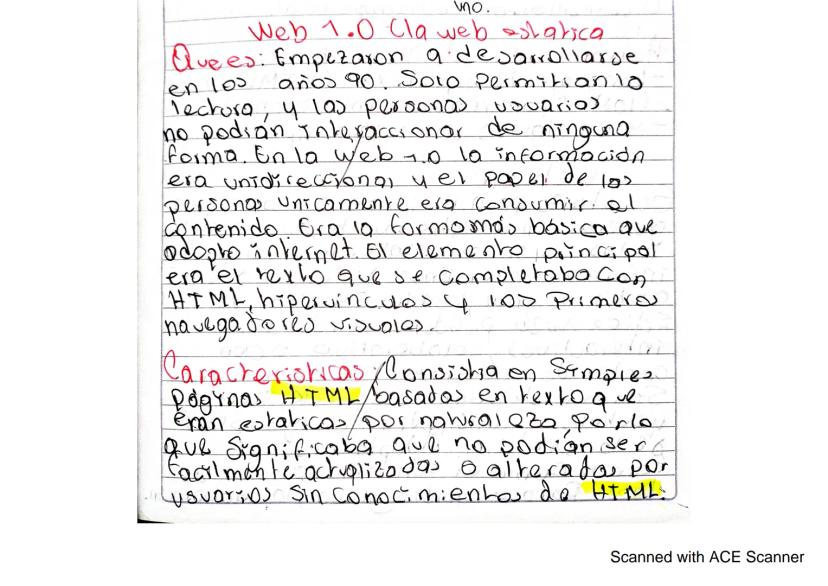 uno.
Web 1.0 (la web estatica
Que es: Empezaron a desarrollarse
en los años 90. Solo permitian la
lectura, y las personas usuarias
no podian interaccionar de ninguna
forma. En la web 1.0 la información
era unidireccional y el papel de las
personas unicamente era consumir el
contenido. Era la forma más básica que
adopto internet. El elemento principal
era el texto que se completaba con
HTML, hipervinculos y los primeros
navegadores visuales.
Caracteristicas: Consistia en simples
páginas HTML basadas en texto que
eran estaticas por naturaleza, por lo
que significaba que no podían ser
facilmente actualizadas o alteradas por
usuarios sin conocimientos de HTML.
Scanned with ACE Scanner